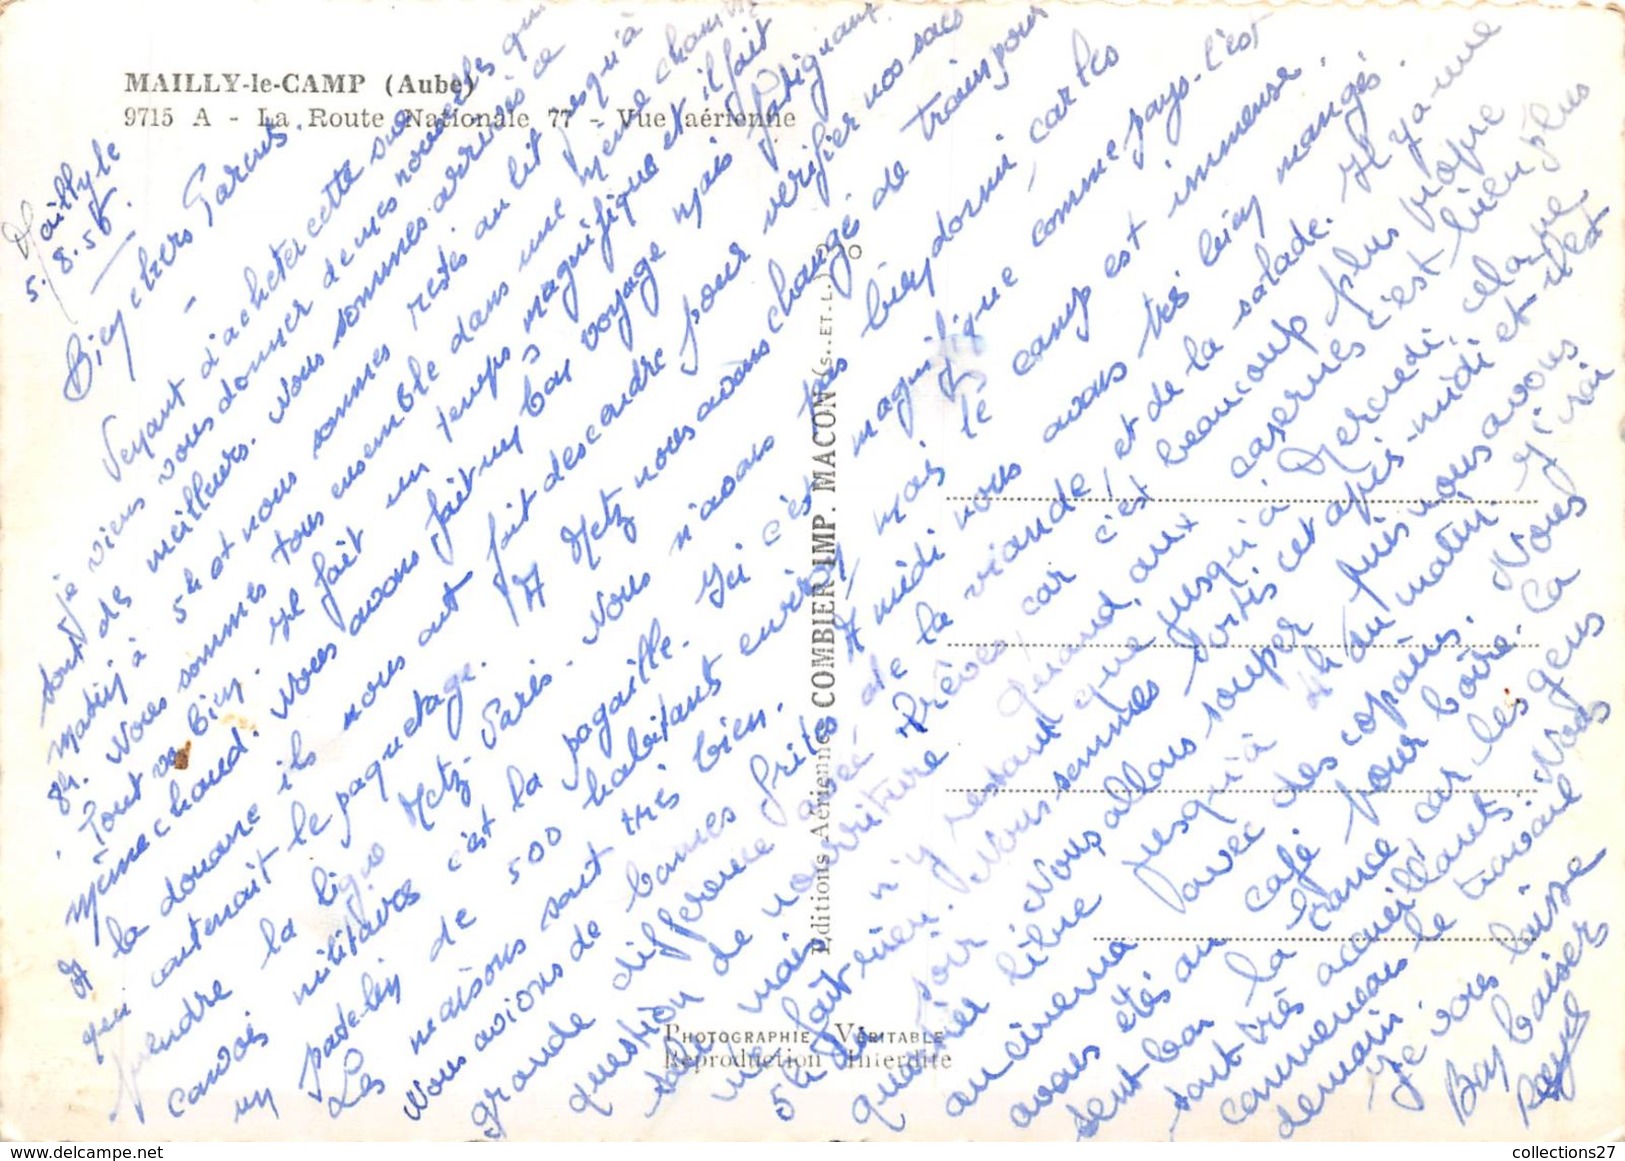 MAILLY-le-CAMP (Aube)
9715 A - La Route Nationale 77 - Vue aérienne
Mailly le
5.8.58.
Bien chers Parents.
Voyant d'acheter cette vue
je viens vous donner de mes nouvelles qui
sont de meilleurs. Nous sommes arrivés ce
matin à 5h et nous sommes restés au lit jusqu'à
8h. Nous sommes tous ensemble dans une même chambre
Tout va bien. Il fait un temps magnifique et il fait
même chaud. Nous avons fait un bon voyage mais fatiguant.
A la douane ils nous ont fait descendre pour vérifier nos sacs
qui contenait le paquetage. A Metz nous avons changé de train pour
prendre la ligne Metz-Paris. Nous n'avons pas bien dormi, car les
convois militaires c'est la pagaille. Ici c'est magnifique comme pays. C'est
un patelin de 500 habitants environ mais le camp est immense.
Les maisons sont très bien. A midi nous avons très bien mangés.
Nous avions de bonnes frites avec de la viande, et de la salade. Il y a une
grande différence avec Trèves, car c'est beaucoup plus propre
question de nourriture quand aux casernes c'est bien plus
mais n'y restant que jusqu'à Mercredi, cela ne
me fait rien. Nous sommes sortis cet après-midi et c'est
5h du soir. Nous allons souper puis nous avons
quartier libre jusqu'à 1h du matin. J'irai
au cinéma avec des copains. Nous
avons étés au café pour boire. Ça
sent bon la France car les gens
sont très accueillants. Nous
commençons le travail
demain.
Je vous laisse
Bon baiser
Editions Aériennes COMBIER IMP. MACON (S. ET. L.)
PHOTOGRAPHIE VÉRITABLE
Reproduction Interdite
collections27